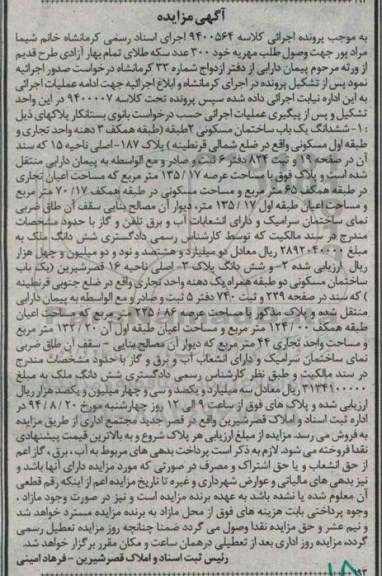 آگهی مزایده
به موجب پرونده اجرائی کلاسه ۹۴۰۰۵۶۴ اجرای اسناد رسمی کرمانشاه خانم شیما
مراد پور جهت وصول طلب مهریه خود ۳۰۰ عدد سکه طلای تمام بهار آزادی طرح قدیم
از ورثه مرحوم پیمان دارابی از دفتر ازدواج شماره ۳۳ کرمانشاه درخواست صدور اجرائیه
نمود پس از تشکیل پرونده در اجرای کرمانشاه و ابلاغ اجرائیه جهت ادامه عملیات اجرائی
به این اداره نیابت اجرائی داده شده سپس پرونده تحت کلاسه ۹۴۰۰۰۰۷ در این واحد
تشکیل و پس از پیگیری عملیات اجرائی حسب درخواست بانوی بستانکار پلاکهای ذیل
: ۱- ششدانگ یک باب ساختمان مسکونی ۲طبقه (طبقه همکف ۳ دهنه واحد تجاری و
طبقه اول مسکونی واقع در ضلع شمالی قرنطینه ) پلاک ۱۸۷- اصلی ناحیه ۱۵ که سند
آن در صفحه ۱۹ و ثبت ۸۳۴ دفتر ۶ ثبت و صادر و مع الواسطه به پیمان دارابی منتقل
شده است و پلاک فوق با مساحت عرصه ۱۷ / ۱۳۵ متر مربع که مساحت اعیان تجاری
در طبقه همکف ۶۵ متر مربع و مساحت مسکونی در طبقه همکف ۱۷/ ۷۰ متر مربع
و مساحت اعیان طبقه اول ۱۷ / ۱۳۵ متر، دیوار آن مصالح بنایی سقف آن طاق ضربی
نمای ساختمان سرامیک و دارای انشعابات آب و برق تلفن و گاز با حدود مشخصات
مندرج در سند مالکیت که توسط کارشناس رسمی دادگستری شش دانگ ملک به
مبلغ ۲۸۹۲۰۴۰۰۰۰ ریال معادل دو میلیارد و هشتصد و نود و دو میلیون و چهل هزار
ریال ارزیابی شده ۲- و شش دانگ پلاک ۳- اصلی ناحیه ۱۶ قصرشیرین (یک باب
ساختمان مسکونی دو طبقه همراه یک دهنه واحد تجاری واقع در ضلع جنوبی قرنطینه
) که سند در صفحه ۲۲۹ و ثبت ۷۴۰ دفتر ۵ ثبت و صادر و مع الواسطه به پیمان دارابی
منتقل شده و پلاک مذکور با مساحت عرصه ۸۶ / ۲۲۵ متر مربع که مساحت اعیان
طبقه همکف ۰۰ / ۱۲۴ متر مربع و مساحت اعیان طبقه اول آن ۲۰ / ۱۳۲ متر مربع
و مساحت واحد تجاری ۴۴ متر مربع که دیوار آن مصالح بنایی - سقف آن طاق ضربی
نمای ساختمان سرامیک و دارای انشعاب آب و برق و گاز با حدود مشخصات مندرج
در سند مالکیت و طبق نظر کارشناس رسمی دادگستری شش دانگ ملک به مبلغ
۳۱۳۴۱۰۰۰۰۰ ریال معادل سه میلیارد و یکصد و سی و چهار میلیون و یکصد هزار ریال
ارزیابی شده و پلاک های فوق از ساعت ۹ الی ۱۲ روز چهارشنبه مورخ ۲۰ / ۸ / ۹۴ در
اداره ثبت اسناد و املاک قصرشیرین واقع در قصر جدید مجتمع اداری از طریق مزایده
به فروش می رسد. مزایده از مبلغ ارزیابی هر پلاک شروع و به بالاترین قیمت پیشنهادی
نقدا فروخته می شود. لازم به ذکر است پرداخت بدهی های مربوط به آب ، برق ، گاز اعم
از حق انشعاب و یا حق اشتراک و مصرف در صورتی که مورد مزایده دارای آنها باشد و
نیز بدهی های مالیاتی و عوارض شهرداری و غیره تا تاریخ مزایده اعم از اینکه رقم قطعی
آن معلوم شده یا نشده باشد به عهده برنده مزایده است و نیز در صورت وجود مازاد ،
وجوه پرداختی بابت هزینه های فوق از محل مازاد به برنده مزایده مسترد خواهد شد
و نیم عشر و حق مزایده نقدا وصول می گردد ضمنا چنانچه روز مزایده تعطیل رسمی
گردد، مزایده روز اداری بعد از تعطیلی درهمان ساعت و مکان مقرر برگزار خواهد شد.
رئیس ثبت اسناد و املاک قصرشیرین - فرهاد امینی